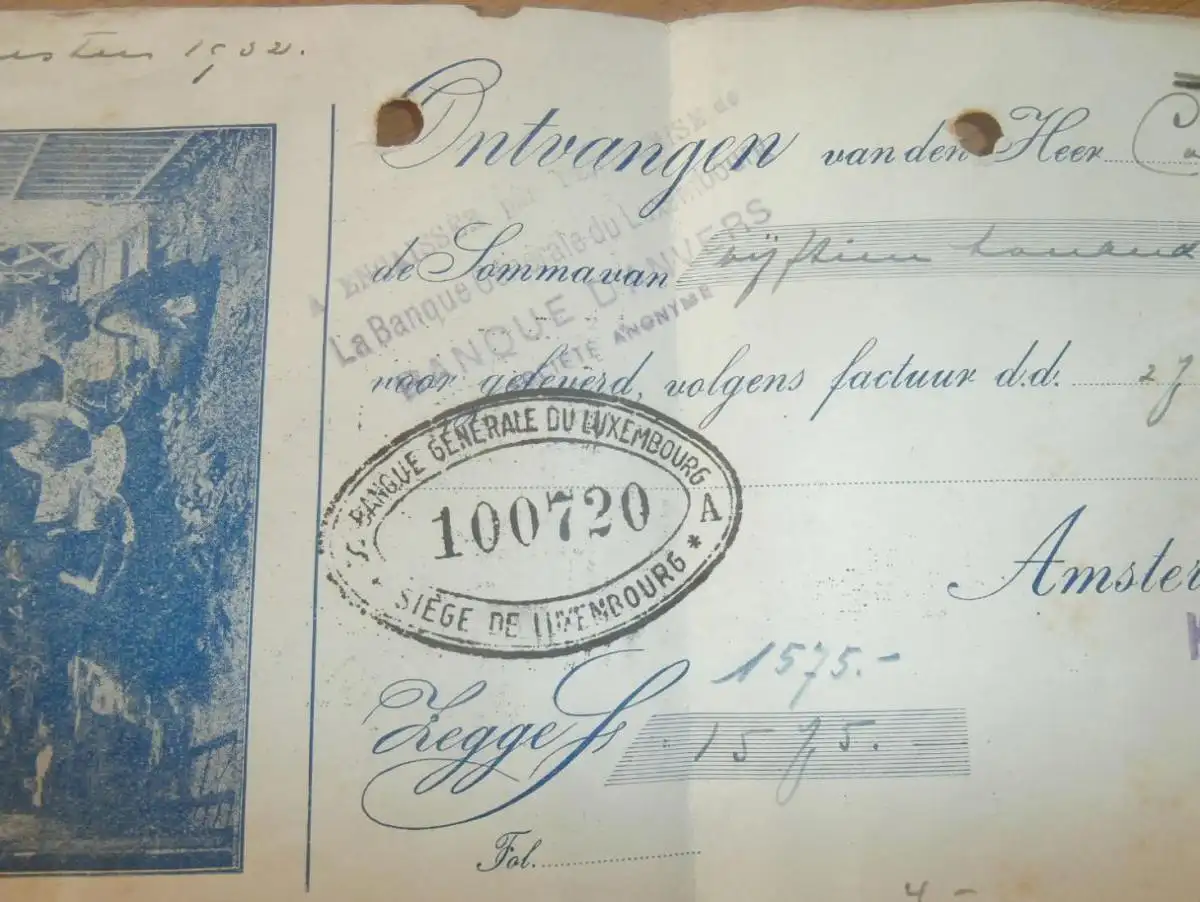 1932.
Ontvangen van den Heer
A ENCAISSER de
La Banque Générale du Luxembourg
BANQUE D'ANVERS
SOCIÉTÉ ANONYME
de Somma van Vijftien
voor geleverd, volgens factuur d.d. 27
BANQUE GÉNÉRALE DU LUXEMBOURG
100720
A
SIÈGE DE LUXEMBOURG *
Amster
1575.-
Zegge fs 1575.-
Fol.
4-